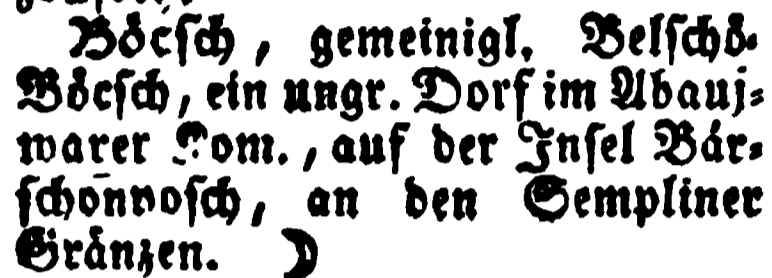 Böcſch, gemeinigl. Belſchö-
Böcſch, ein ungr. Dorf im Abauj-
warer Kom., auf der Inſel Bár-
ſchonnoſch, an den Sempliner
Gränzen. ☽